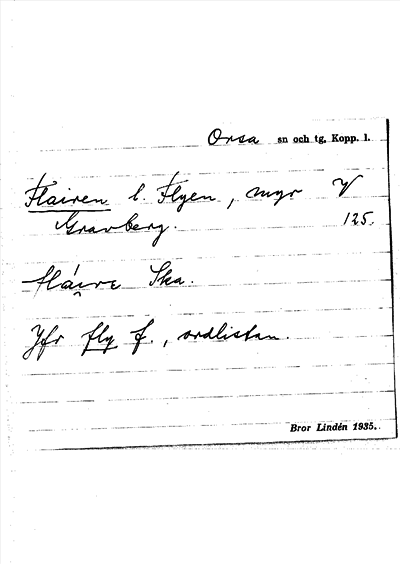 Orsa sn och tg, Kopp. l.
Flairen l. Flyen, myr V
Gravberg. 125.
fláire Ska.
Jfr fly f., ordlistan.
Bror Lindén 1935.